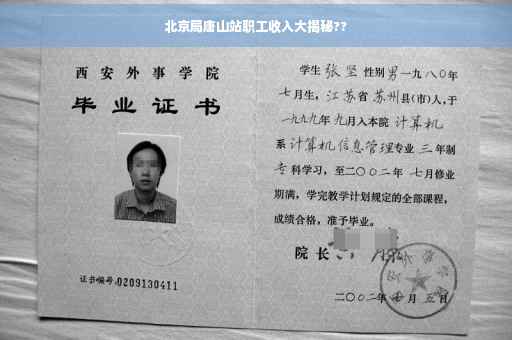 北京局唐山站职工收入大揭秘??
西安外事学院
毕业证书
证书编号:0209130411
学生 张坚 性别 男 一九八〇年
七月生, 江苏省 苏州县(市)人,于
一九九九年 九月入本院 计算机
系 计算机信息管理专业 三 年制
专 科学习, 至二〇〇二年 七月修业
期满, 学完教学计划规定的全部课程,
成绩合格, 准予毕业。
院长
二〇〇二年 七月 五日